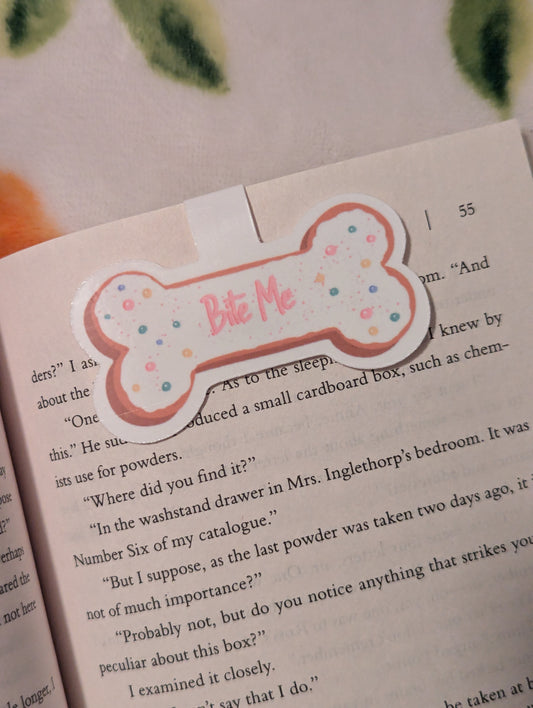 | 55
Bite Me
om. "And
ders?" I as
I knew by
about the . As to the sleepi
"One oduced a small cardboard box, such as chem-
this." He su
ists use for powders.
"Where did you find it?"
"In the washstand drawer in Mrs. Inglethorp's bedroom. It was
Number Six of my catalogue."
"But I suppose, as the last powder was taken two days ago, it i
not of much importance?"
"Probably not, but do you notice anything that strikes you
peculiar about this box?"
I examined it closely.
n't say that I do."
be taken at
pose
d?"
erhaps
ared the
not here
le longer, I